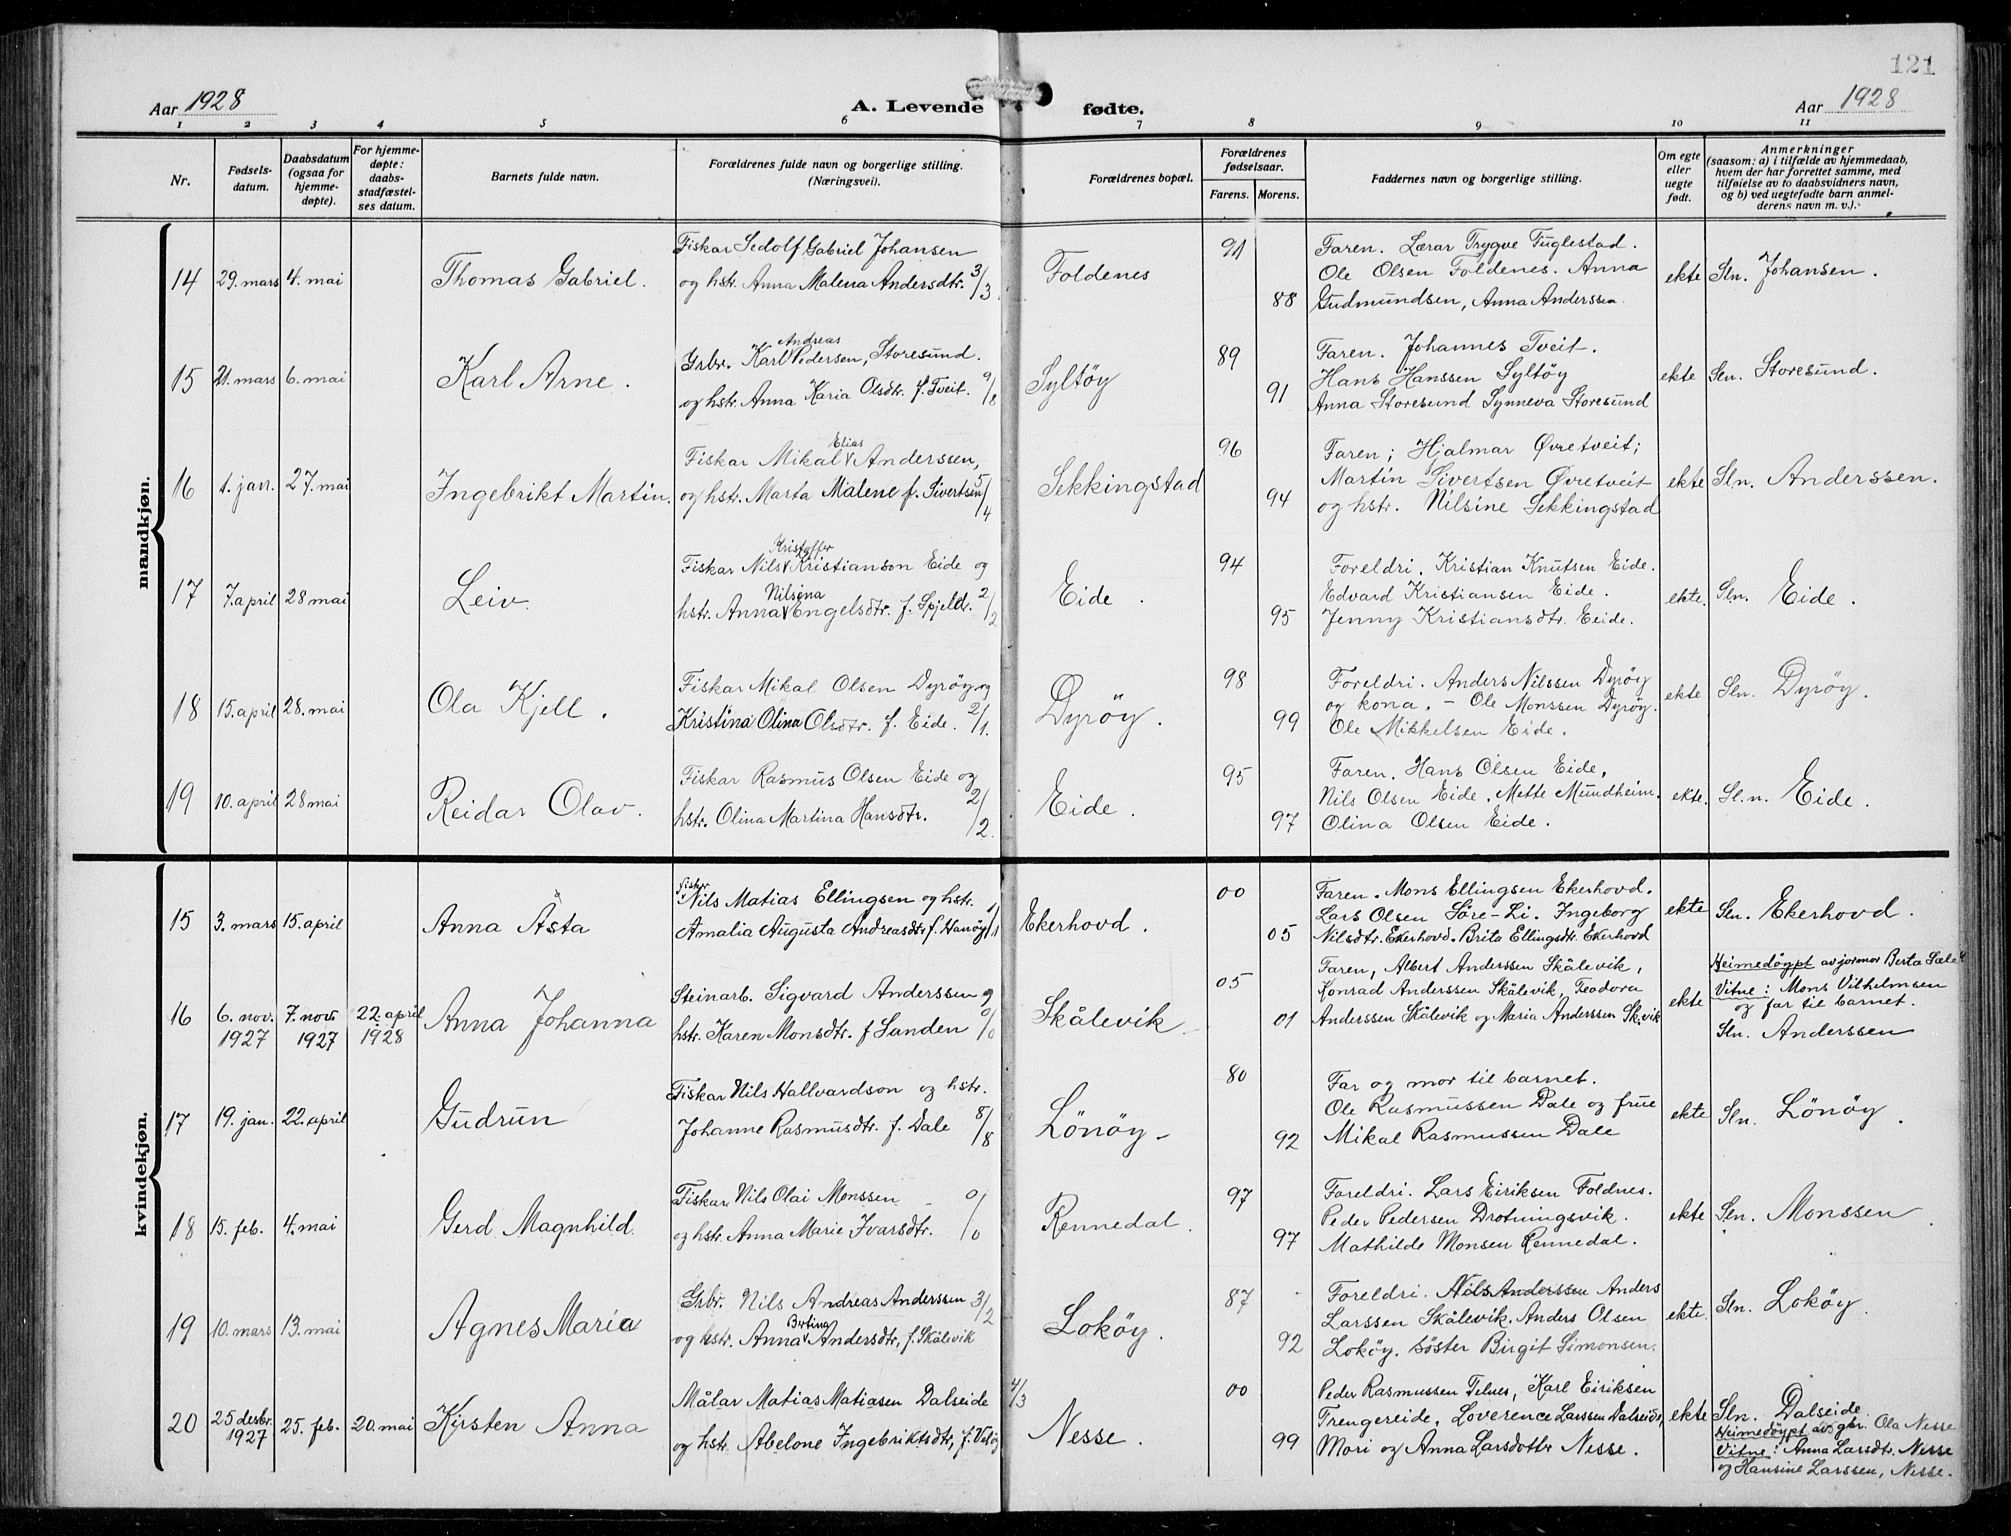 121
Aar 1928 A. Levende fødte. Aar 1928
1 2 3 4 5 6 7 8 9 10 11
Nr.
Fødsels-
datum.
Daabsdatum
(ogsaa for
hjemme-
døpte).
For hjemme-
døpte:
daabs-
stadfæstel-
ses datum.
Barnets fulde navn.
Forældrenes fulde navn og borgerlige stilling.
(Næringsvei).
Forældrenes bopæl.
Forældrenes
fødselsaar.
Farens. Morens.
Faddernes navn og borgerlige stilling.
Om egte
eller
uegte
født.
Anmerkninger
(saasom: a) i tilfælde av hjemmedaab,
hvem der har forrettet samme, med
tilføielse av to daabsvidners navn,
og b) ved uegtefødte barn anmel-
derens navn m. v.).
mandkjøn.
14 29. mars 4. mai Thomas Gabriel.
Fiskar Sedolf Gabriel Johansen
og hstr. Anna Malena Andersdtr. 3/3
Foldenes
91
88
Faren. Lærar Trygve Fuglestad.
Ole Olsen Foldenes. Anna
Gudmundsen, Anna Anderssen
ekte Sln. Johansen.
15 21. mars 6. mai Karl Arne.
Andreas
Grbr. Karl Pedersen, Storesund.
og hstr. Anna Karia Olsdtr. f. Tveit. 9/8
Syltøy
89
91
Faren. Johannes Tveit.
Hans Hanssen Syltøy
Anna Storesund Synneva Storesund
ekte Sln. Storesund.
16 1. jan. 27. mai Ingebrikt Martin.
Elias
Fiskar Mikal Anderssen,
og hstr. Marta Malene f. Sivertsen 5/4
Sekkingstad
96
94
Faren; Hjalmar Øvretveit;
Martin Sivertsen Øvretveit
og hstr. Nilsine Sekkingstad
ekte Sln. Anderssen.
17 7. april 28 mai Leiv.
Kristoffer
Fiskar Nils Kristianson Eide og
Nilsina
hstr. Anna Engelsdtr. f. Spjeld. 2/2
Eide.
94
95
Foreldri. Kristian Knutsen Eide.
Edvard Kristiansen Eide.
Jenny Kristiansdtr. Eeide.
ekte. Sln. Eide.
18 15. april 28. mai Ola Kjell.
Fiskar Mikal Olsen Dyrøy og
Kristina Olina Olsdtr. f. Eide. 2/1.
Dyrøy.
98
99
Foreldri. Anders Nilssen Dyrøy
og kona. – Ole Monssen Dyrøy.
Ole Mikkelsen Eide.
ekte Sln. Dyrøy.
19 10. april 28 mai Reidar Olav.
Fiskar Rasmus Olsen Eide og
hstr. Olina Martina Hansdtr. 2/2.
Eide.
95
97
Faren. Hans Olsen Eide,
Nils Olsen Eide. Mette Mundheim.
Olina Olsen Eide.
ekte. Sln. Eide.
kvindekjøn.
15 3. mars 15. april Anna Åsta
fiskar
Nils Matias Ellingsen og hstr.
Amalia Augusta Andreasdtr. f. Hanøy 1/1
Ekerhovd.
00
05
Faren. Mons Ellingsen Ekerhovd.
Lars Olsen Søre-Li. Ingeborg
Nilsdtr. Ekerhovd. Brita Ellingsdtr. Ekerhovd
ekte Sln. Ekerhovd.
16 6. nov. 1927 7. nov. 1927 22. april 1928 Anna Johanna
Steinarb. Sigvard Anderssen og
hstr. Karen Monsdtr. f Sanden 0/0
Skålevik
05
01
Faren, Albert Anderssen Skålevik,
Konrad Anderssen Skålevik, Teodora
Anderssen Skålevik og Maria Anderssen Sk.vik
ekte
Heimedøypt av jormor Berta
Vitne: Mons Vilhelmsen
og far til barnet.
Sln. Anderssen
17 19. jan. 22. april Gudrun
Fiskar Nils Hallvardson og hstr.
Johanne Rasmusdtr. f. Dale 8/8
Lønøy –
80
92
Far og mor til barnet.
Ole Rasmussen Dale og frue
Mikal Rasmussen Dale
ekte Sln. Lønøy.
18 15. feb. 4. mai Gerd Magnhild
Fiskar Nils Olai Monssen
og hstr. Anna Marie Ivarsdtr. 0/0
Rennedal.
97
97
Foreldri. Lars Eiriksen Foldnes.
Peder Pedersen Drotningsvik.
Mathilde Monsen Rennedal.
ekte Sln. Monssen
19 10. mars 13. mai Agnes Maria
Grbr. Nils Andreas Anderssen 3/2
Berlina
og hstr. Anna Andersdtr, f. Skålevik
Lokøy.
87
92
Foreldri. Nils Anderssen Anders
Larssen Skålevik. Anders Olsen
Lokøy. søster Birgit Simonsen.
ekte. Sln. Lokøy.
20 25 desbr. 1927 25. feb. 20. mai Kirsten Anna
Målar Matias Matiasen Dalseide 4/3
og hstr. Abelone Ingebriktsdtr, f.
Nesse.
00
99
Peder Rasmussen Telnes, Karl Eiriksen
Trengereide, Loverence Larssen Dalseide,
Mori og Anna Larsdotter Nesse.
ekte
Sln. Dalseide
Heimedøypt av gbr. Ola Nesse
Vitne: Anna Larsdtr. Nesse
og Hansine Larssen, Nesse.